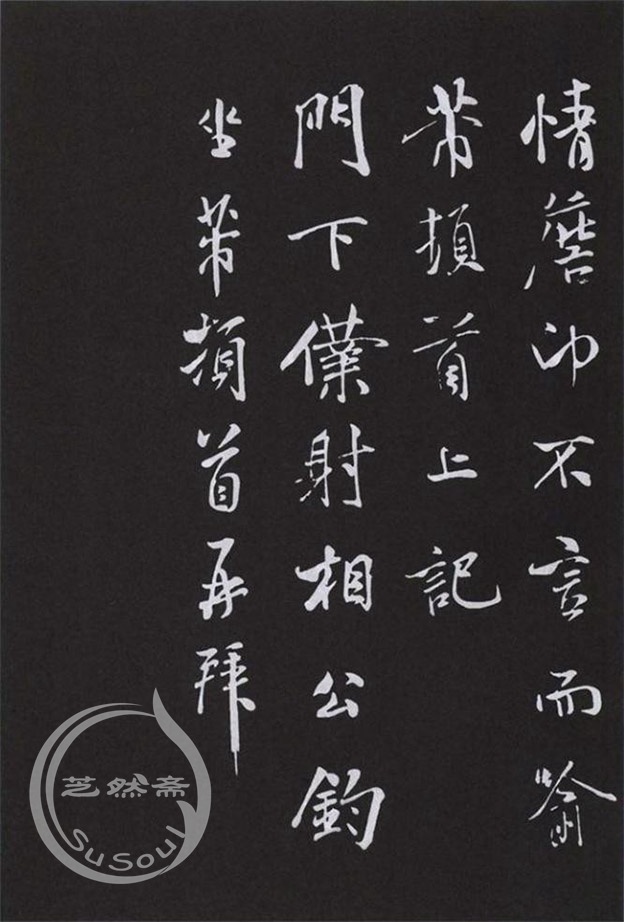 情詹卬不言而喻
芾頓首上記
門下僕射相公鈞
坐芾頓首再拜
芝然斋
SuSoul